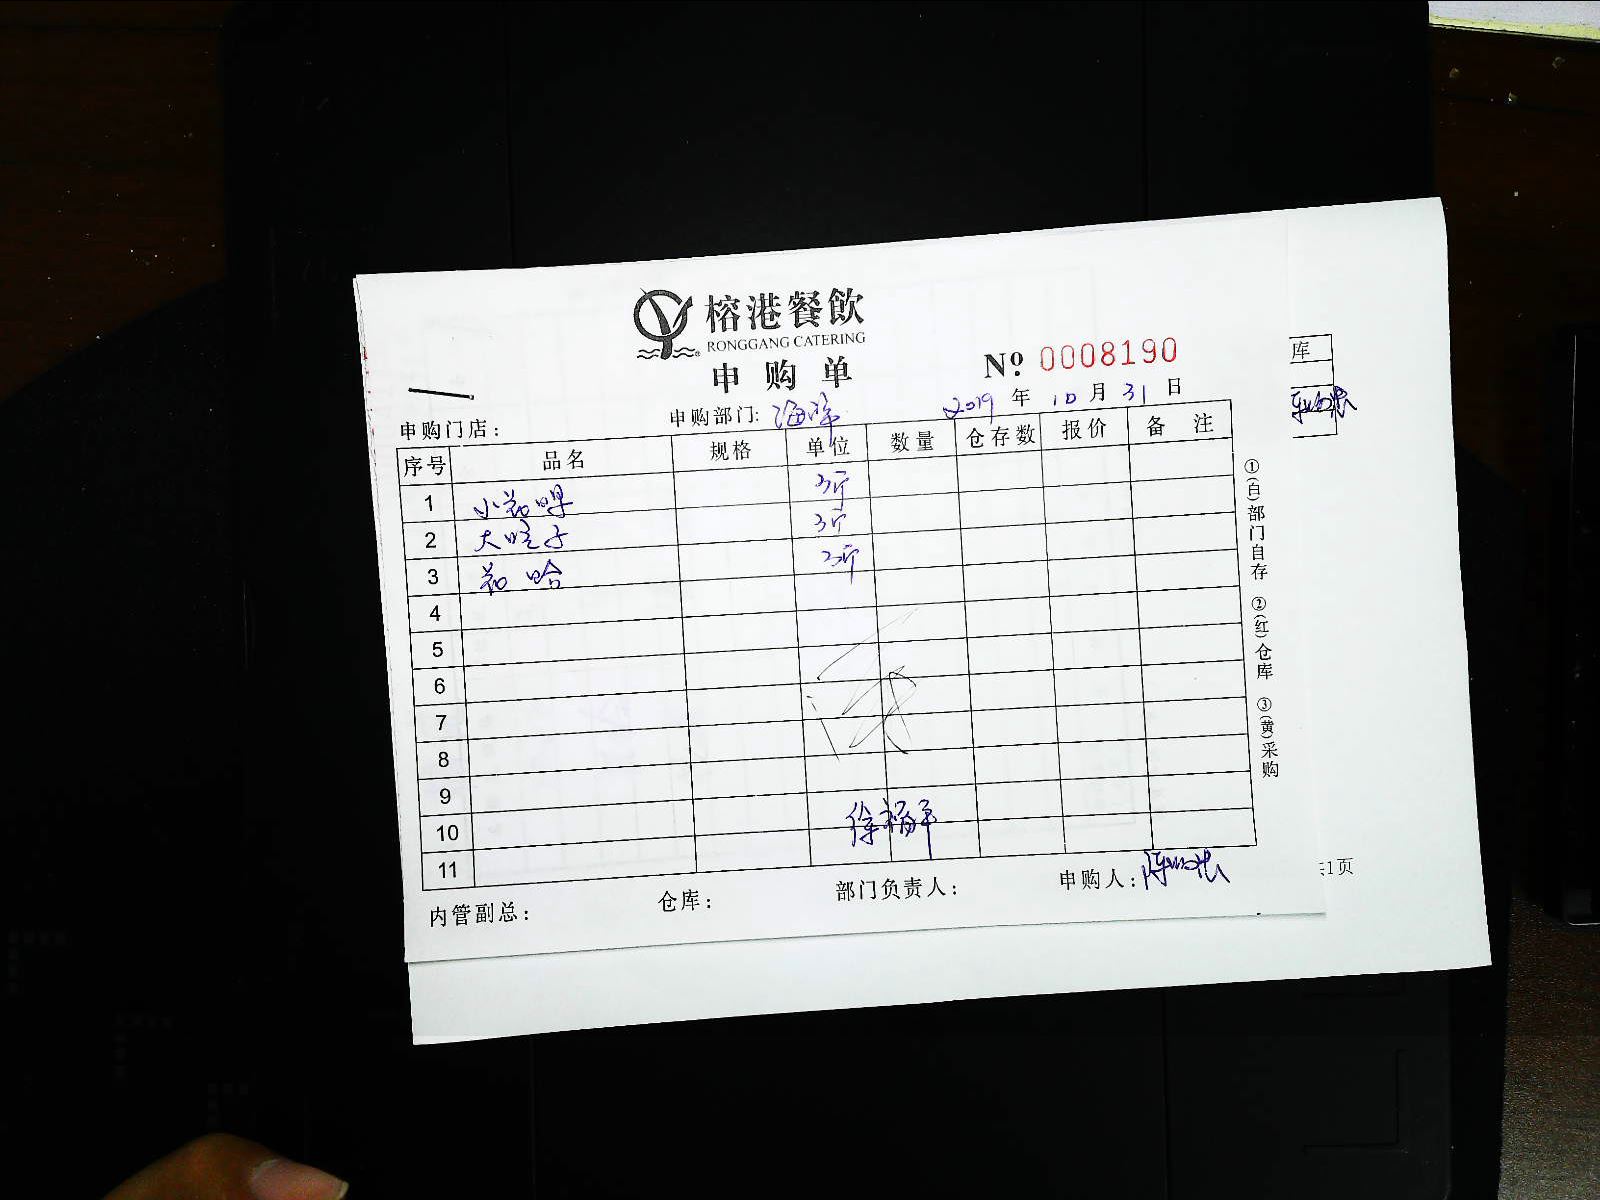 榕港餐飲
RONGGANG CATERING
申购单
Nº 0008190
2019 年 10 月 31 日
申购门店： 申购部门:
序号 品名 规格 单位 数量 仓存数 报价 备注
1 3斤
2 大蛏子 3斤
3 花哈 3斤
4
5
6
7
8
9
10 徐福平
11
内管副总： 仓库： 部门负责人： 申购人：
①(白)部门自存 ②(红)仓库 ③(黄)采购
库
共1页